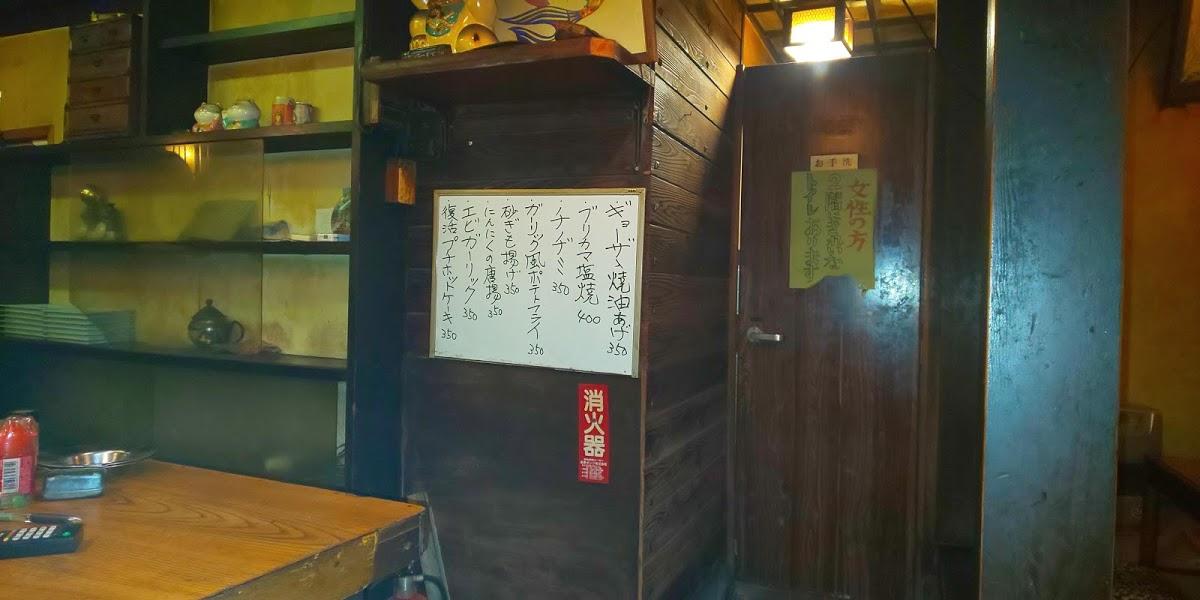 ギョーザ焼油あげ 350
ブリカマ塩焼 400
・チヂミ 350
ガーリック風ポテトフライ 350
砂ぎも揚げ 350
・にんにくの唐揚 350
・エビガーリック 350
復活プチホットケーキ 350
お手洗
女性の方
2階にきれいな
トイレあります
消火器